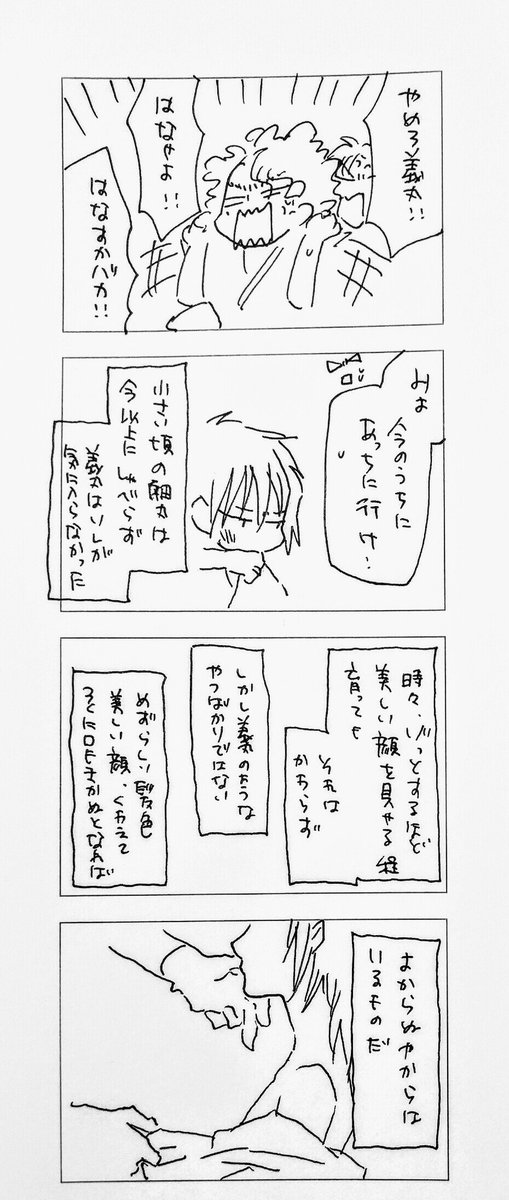 やめろ義丸!!
はなせよ!!
はなすかバカ!!
今のうちに
あっちに行け!
小さい頃の
今以上にしゃべらず
義丸はいしが
気に入らなかった
時々、ゾッとするほど
美しい顔を見せる程
育っても
それは
かわらず
しかし義のような
やつばかりではない
めずらしい髪色
美しい顔、くわえて
ろくに口もきかぬとなれば
よからぬやからは
いるものだ